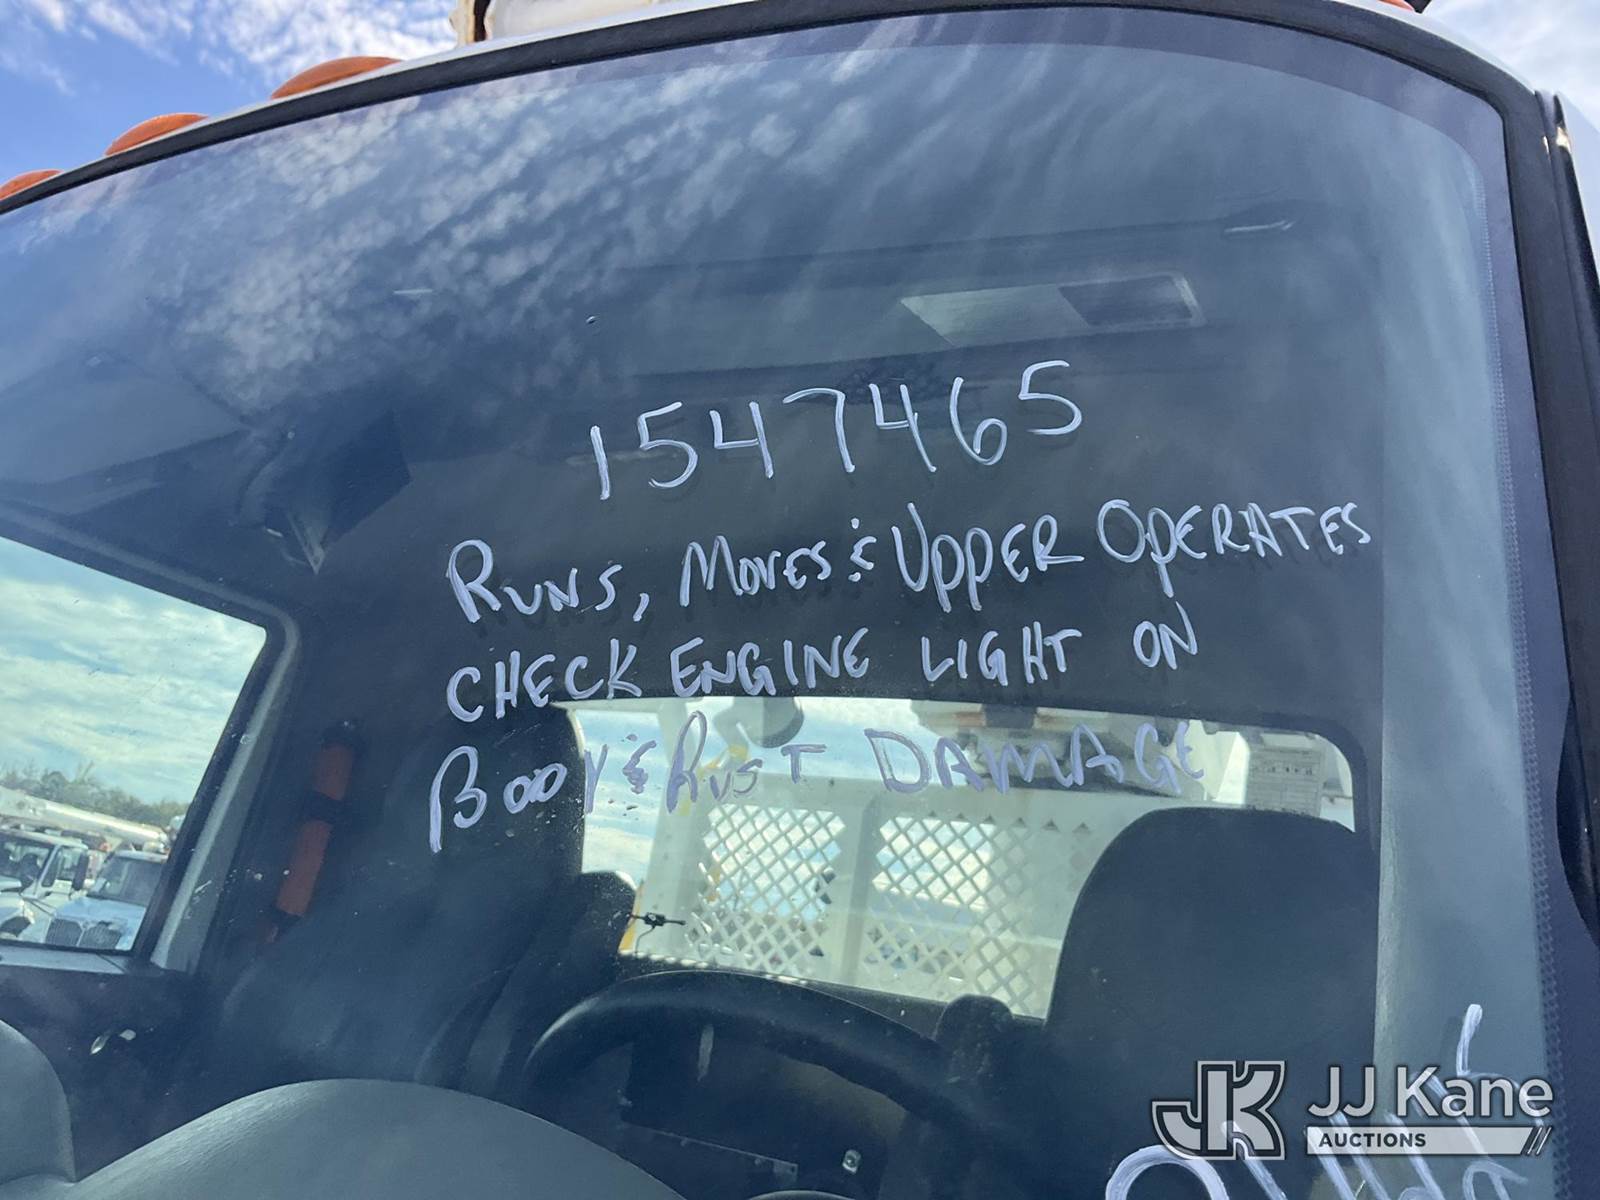 1547465
RUNS, MOVES & UPPER OPERATES
CHECK ENGINE LIGHT ON
BODY & RUST DAMAGE
JK JJ Kane
AUCTIONS